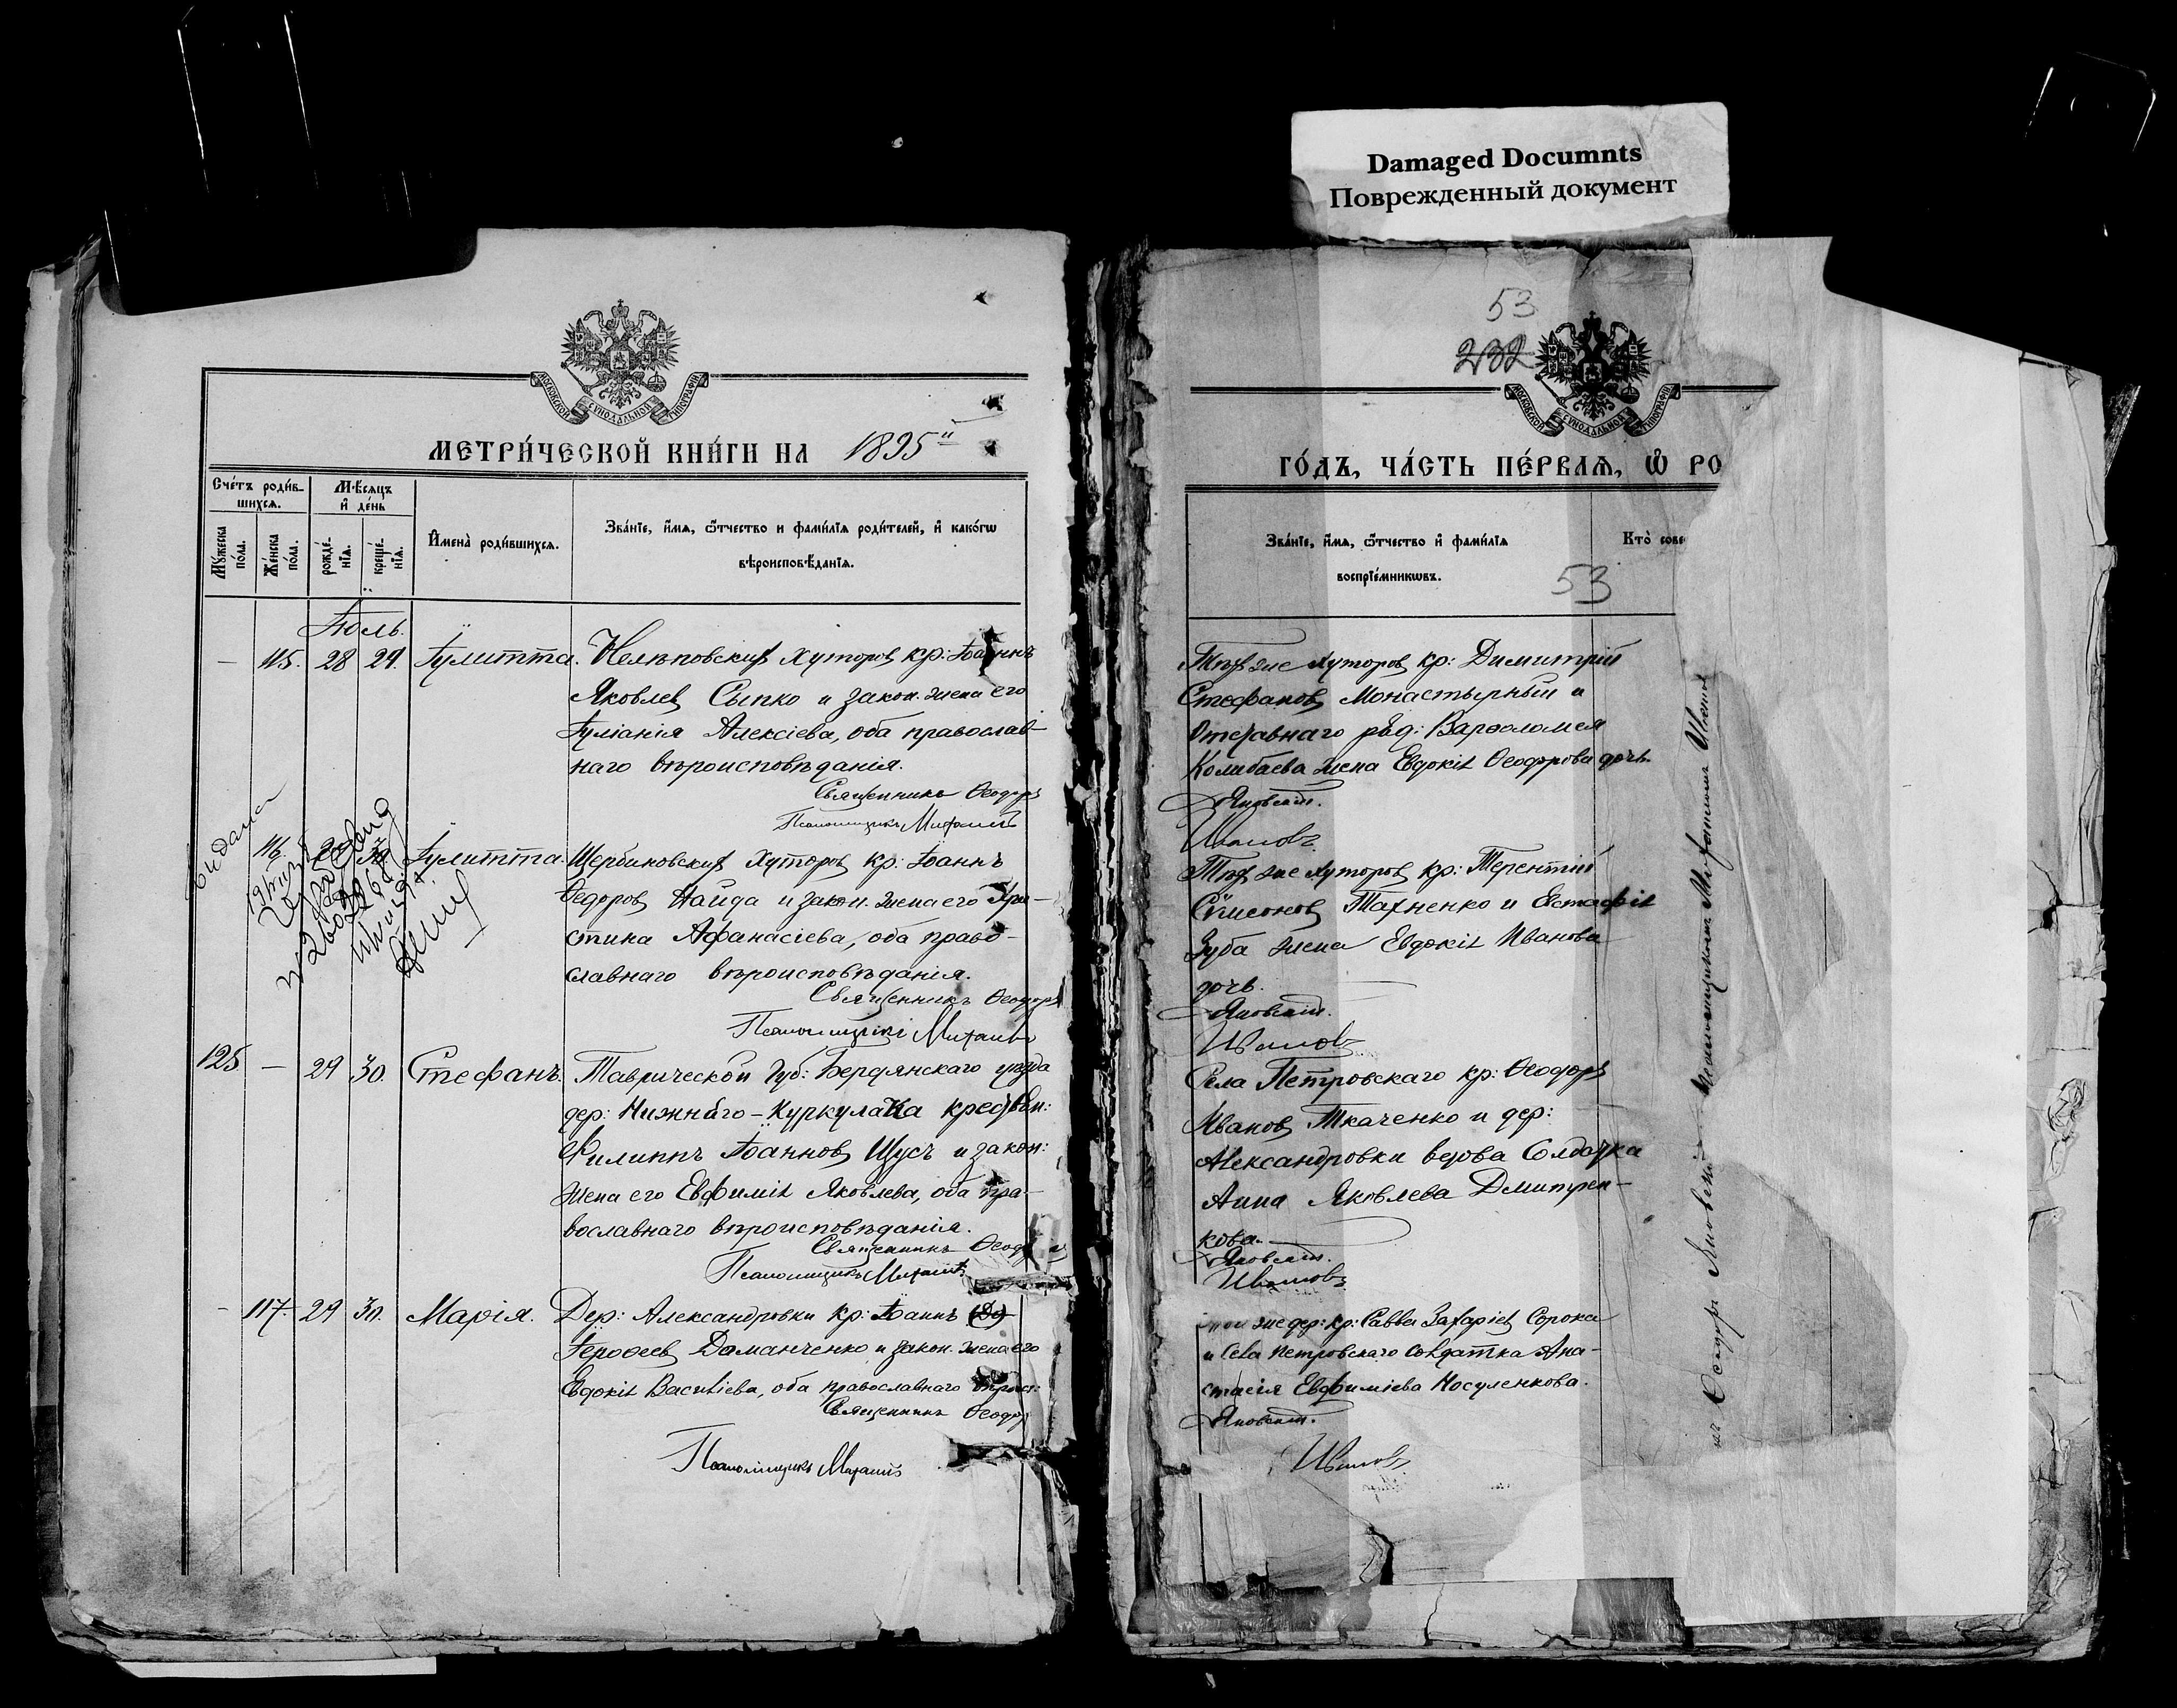 Damaged Documnts
Поврежденный документ
МОСКОВСКОЙ СѴНОДАЛЬНОЙ ТИПОГРАФІИ
МЕТРИ́ЧЕСКОЙ КНИ́ГИ НА 1895й
Сче́тъ роди́в-
шихся.
Мѣ́сяцъ
и҆ де́нь
Мꙋ́жеска
по́ла.
Же́нска
по́ла.
рожде́-
нїя.
креще́-
нїя.
И҆мена̀ роди́вшихся.
Зва́нїе, и҆́мя, ѻ҆́тчество и фами́лїя роди́телей, и҆ како́гѡ
вѣроисповѣ́данїя.
Іюль.
— 115. 28 29. Іулитта. Нелѣповскихъ хуторовъ кр: Іоаннъ
Яковлевъ Сыпко и закон. жена его
Іуліанія Алексіева, оба православ-
наго вѣроисповѣданія.
Священникъ Ѳеодоръ
Псаломщикъ Михаилъ
выдана
116. Іулитта. Щербиновскихъ хуторовъ кр: Іоаннъ
Ѳедоровъ Найда и закон. жена его Хри-
стина Афанасіева, оба право-
славнаго вѣроисповѣданія.
Священникъ Ѳеодоръ
Псаломщикъ Михаилъ
125 — 29 30. Стефанъ. Таврической губ: Бердянскаго уѣзда
дер: Нижняго-Куркулака крестьян:
Филиппъ Іоанновъ Щусъ и закон:
жена его Евфимія Яковлева, оба пра-
вославнаго вѣроисповѣданія.
Священникъ Ѳеодоръ
Псаломщикъ Михаилъ
- 117. 29 30. Марія. Дер: Александровки кр: Іоаннъ
Іероѳеевъ Даманченко и закон. жена его
Евдокія Василіева, оба православнаго вѣроисп:
Священникъ Ѳеодоръ
Псаломщикъ Михаилъ
53
232
МОСКОВСКОЙ СѴНОДАЛЬНОЙ ТИПОГРАФІИ
ГО́ДЪ, ЧА́СТЬ ПЕ́РВАЯ, Ѡ҆ РО
Зва́нїе, и҆́мя, ѻ҆́тчество и҆ фами́лїя
воспрїе́мникѡвъ.
Кто̀ сове
53
Тѣхъ же хуторовъ кр: Димитрій
Стефановъ Монастырный и
Отставнаго ряд: Варѳоломея
Колибаева жена Евдокія Ѳеодорова дочь.
Яновскій.
Ивановъ
Тѣхъ же хуторовъ кр: Терентій
Симеоновъ Тахненко и Евстафія
Зуба жена Евдокія Иванова
дочь.
Яновскій.
Ивановъ
Села Петровскаго кр: Ѳеодоръ
Ивановъ Ткаченко и дер:
Александровки вдова Солдатка
Анна Яковлева Дмитрен-
кова.
Яновскій.
Ивановъ
той же дер: кр: Савва Захаріевъ Сорока
и села Петровскаго солдатка Ана-
стасія Евфиміева Носуленкова.
Яновскій.
Ивановъ
Ѳеодоръ Яновскій псаломщикомъ Михаиломъ